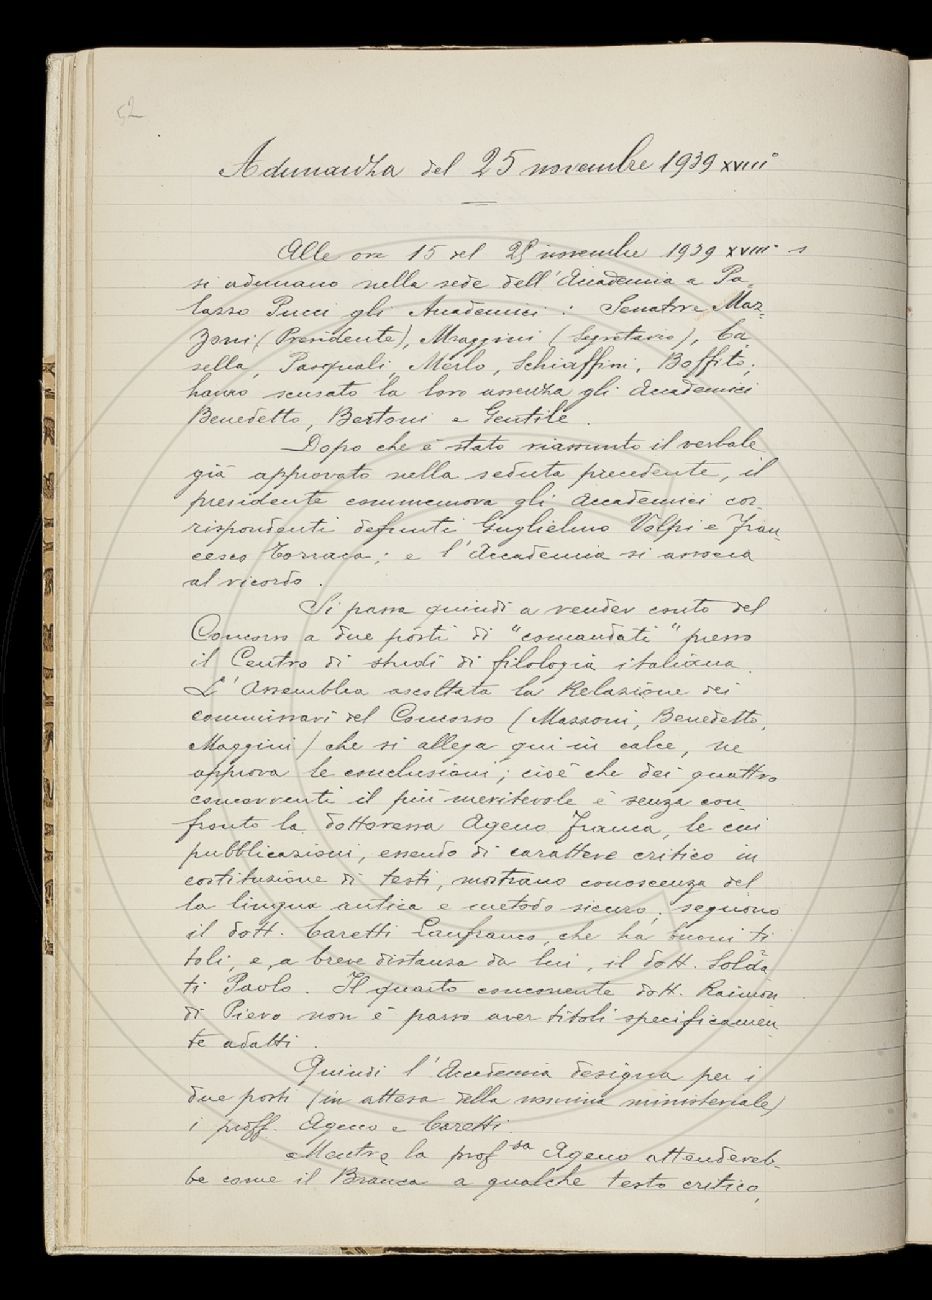 52
Adunanza del 25 novembre 1939 XVIII°
Alle ore 15 del 25 novembre 1939 XVIII° s
si adunano nella sede dell'Accademia a Pa-
lazzo Pucci gli Accademici: Senatore Maz-
zoni (Presidente), Maggini (Segretario), Ca
sella, Pasquali, Merlo, Schiaffini, Boffito;
hanno scusato la loro assenza gli Accademici
Benedetto, Bertoni e Gentile.
Dopo che è stato riassunto il verbale
già approvato nella seduta precedente, il
presidente commemora gli Accademici cor
rispondenti defunti Guglielmo Volpi e Fran-
cesco Torraca; e l'Accademia si associa
al ricordo.
Si passa quindi a render conto del
Concorso a due posti di "comandati" presso
il Centro di studi di filologia italiana
L'Assemblea ascoltata la Relazione dei
commissari del Concorso (Mazzoni, Benedetto,
Maggini) che si allega qui in calce, ne
approva le conclusioni; cioè che dei quattro
concorrenti il più meritevole è senza con
fronto la dottoressa Ageno Franca, le cui
pubblicazioni, essendo di carattere critico in
costituzione di testi, mostrano conoscenza del
la lingua antica e metodo sicuro; seguono
il dott. Caretti Lanfranco, che ha buoni ti
toli, e, a breve distanza da lui, il dott. Solda
ti Paolo. Il quarto concorrente dott. Raimon
di Piero non è parso aver titoli specificamen
te adatti.
Quindi l'Accademia designa per i
due posti (in attesa della nomina ministeriale)
i proff. Ageno e Caretti
Mentre la prof.ssa Ageno attendereb-
be come il Branca a qualche testo critico,